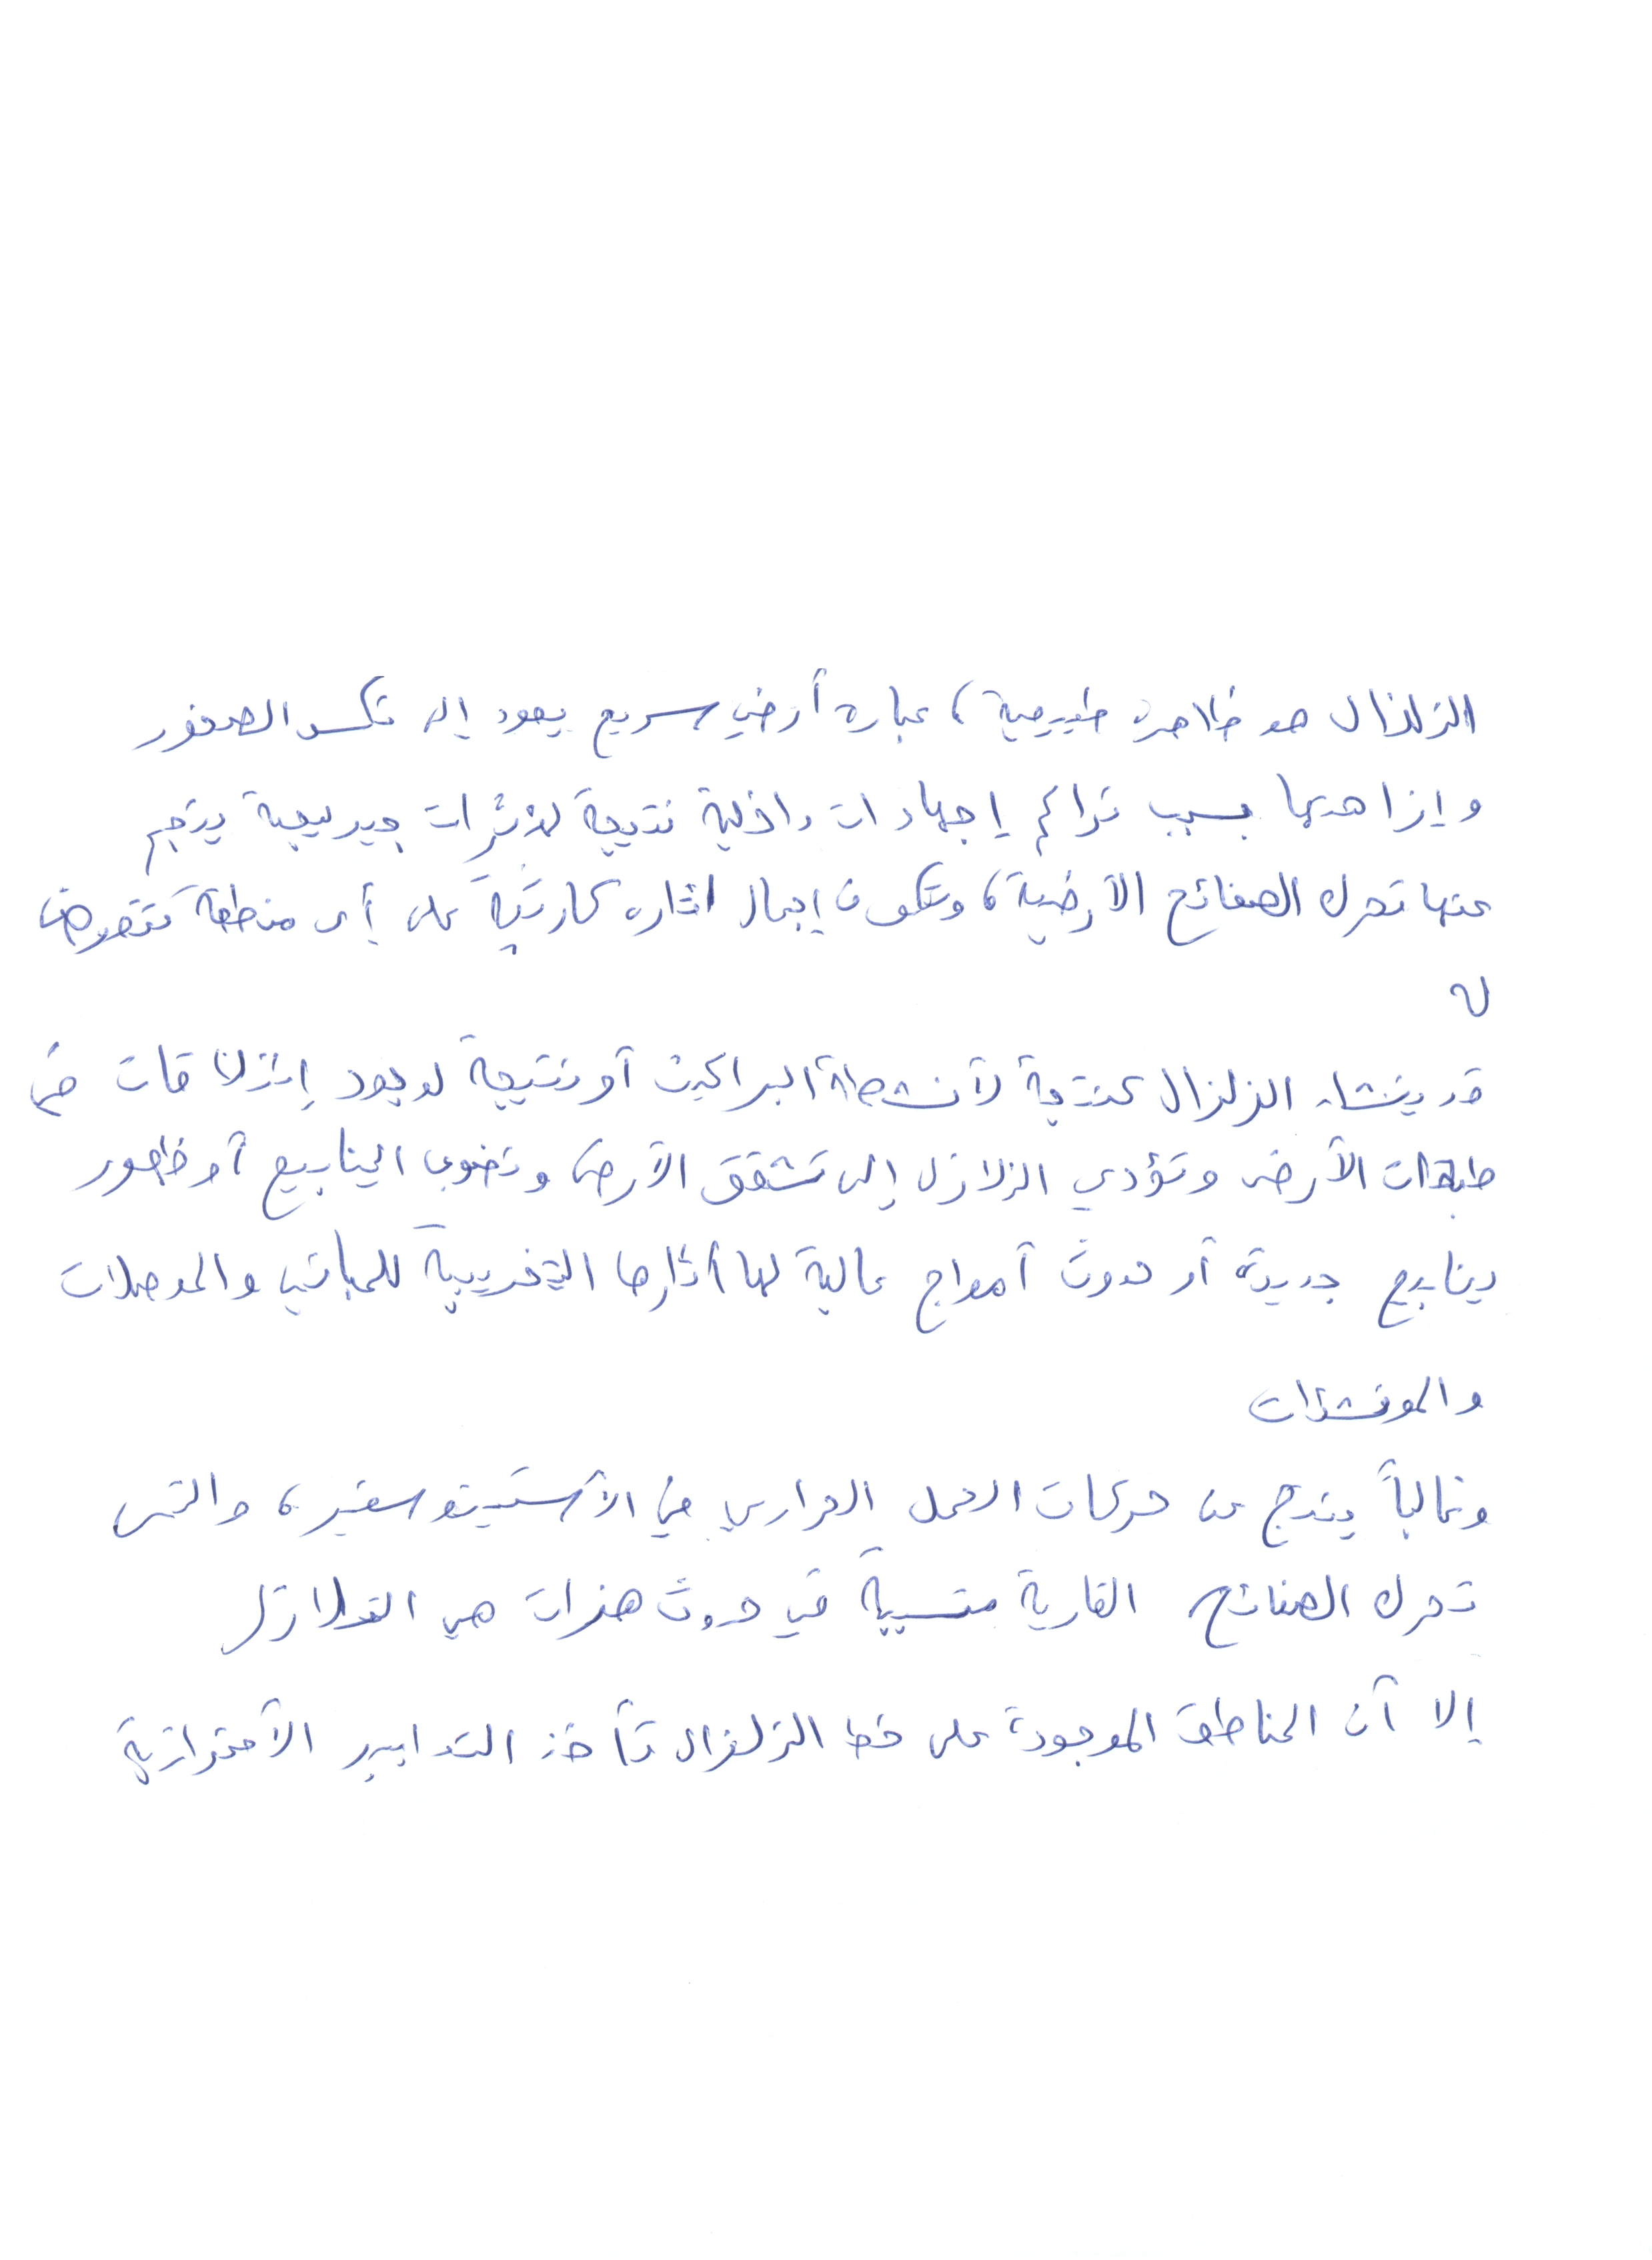 الزلزال هو ظاهرة طبيعية، عبارة أرضي سريع يعود إلى تكسر الصخور
وإزاحتها بسبب تراكم إجهادات داخلية نتيجة لمؤثرات جيولوجية ينجم
عنها تحرك الصفائح الأرضية، وتكون إجمال اثاره كارثية على أى منطقة تتعرض
له
قد ينشاء الزلزال كنتيجة لأنشطة البراكين أو نتيجة لوجود إنزلاقات في
طبقات الأرض وتؤدي الزلازل إلى تشقق الأرض ونضوب الينابيع أو ظهور
ينابيع جديدة أو حدوث أمواج عالية لها أثارها التخريبية للمباني والموصلات
والمونشئات
وغالباً ينتج عن حركات الحمل الحراري في الأستينوسفير، والتى
تحرك الصفائح القارية متسببة في حدوث هزات هي الزلازل
إلا أن المناطق الموجودة على خط الزلزال تأخذ التدابير الأحترازية